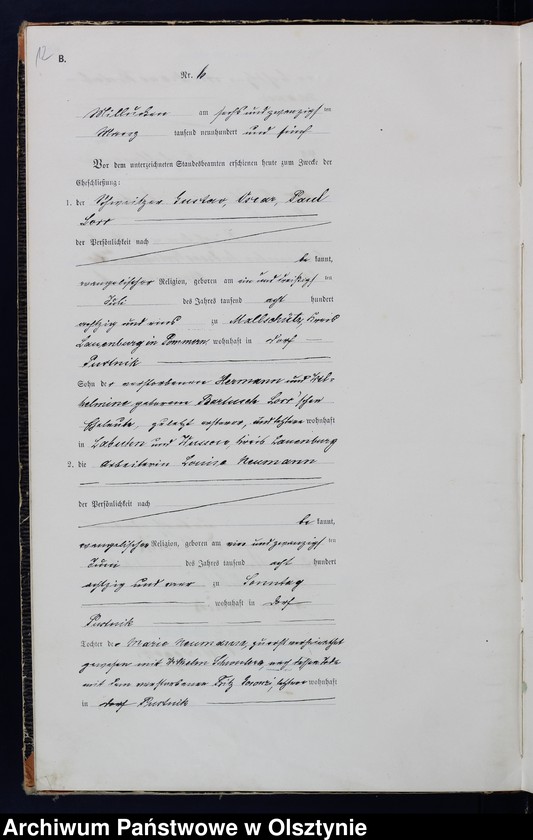 12
B.
Nr. 6
am sechs und zwanzigsten
März tausend neunhundert und fünf
Vor dem unterzeichneten Standesbeamten erschienen heute zum Zwecke der
Eheschließung:
1. der Schweitzer Gustav, Oscar, Paul
Lorr
der Persönlichkeit nach
be kannt,
evangelischer Religion, geboren am ein und dreißigsten
Juli des Jahres tausend acht hundert
achtzig und eins zu Kreis
Lauenburg in Pommern, wohnhaft in Dorf
Purtnik
Sohn der verstorbenen Hermann und Wil-
helmine geborene Lorr'schen
Eheleute, zuletzt ersterer, und letztere wohnhaft
in Labuhn und Kreis Lauenburg
2. die Arbeiterin Louise Neumann
der Persönlichkeit nach
be kannt,
evangelischer Religion, geboren am vier und zwanzigsten
Juni des Jahres tausend acht hundert
achtzig und zu Sonntag
wohnhaft in Dorf
Purtnik
Tochter der Marie Neumann, zuerst verheirathet
gewesen mit Wilhelm nach dessen Tode
mit dem verstorbenen Fritz letztere wohnhaft
in Dorf Purtnik
Archiwum Państwowe w Olsztynie